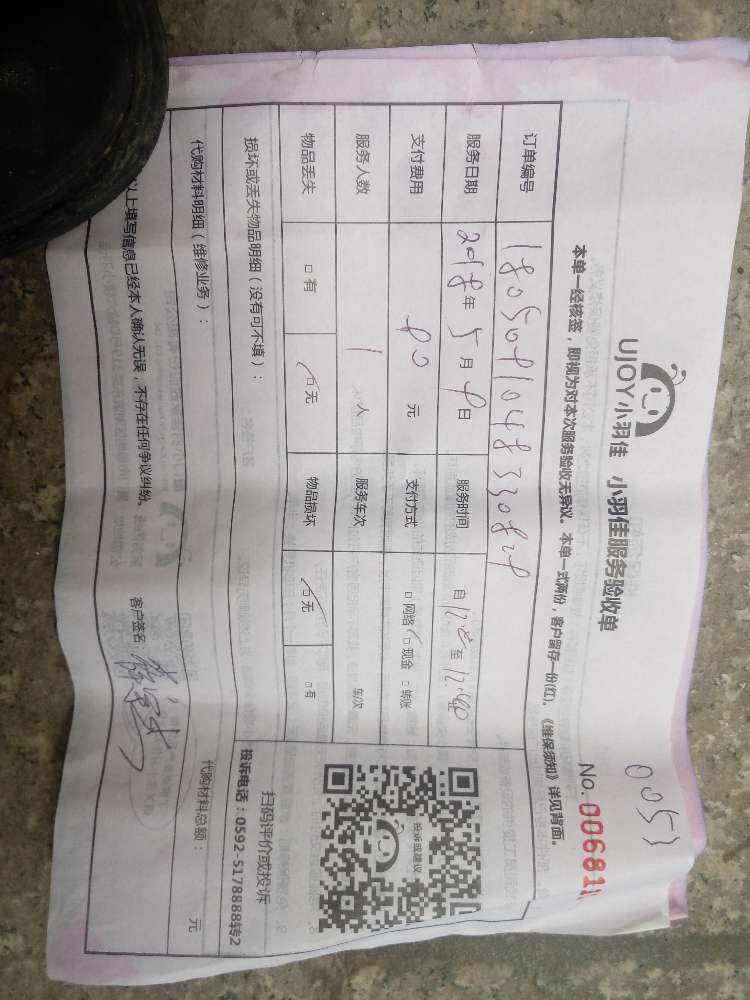 0053
UJOY小羽佳 小羽佳服务验收单
No. 00681
本单一经核签，即视为对本次服务验收无异议。本单一式两份，客户留存一份(红)。《维保须知》详见背面。
订单编号
服务日期 2018年5月9日 服务时间 自 至 12:40
支付费用 90元 支付方式 □网络 □现金 □转账
服务人数 1人 服务车次 车次
物品丢失 □有 □无 物品损坏 □无 □有
投诉或建议
扫码评价或投诉
投诉电话：0592-5178888转2
损坏或丢失物品明细（没有可不填）：
代购材料明细（维修业务）： 代购材料总额： 元
以上填写信息已经本人确认无误，不存在任何争议纠纷。 客户签名：